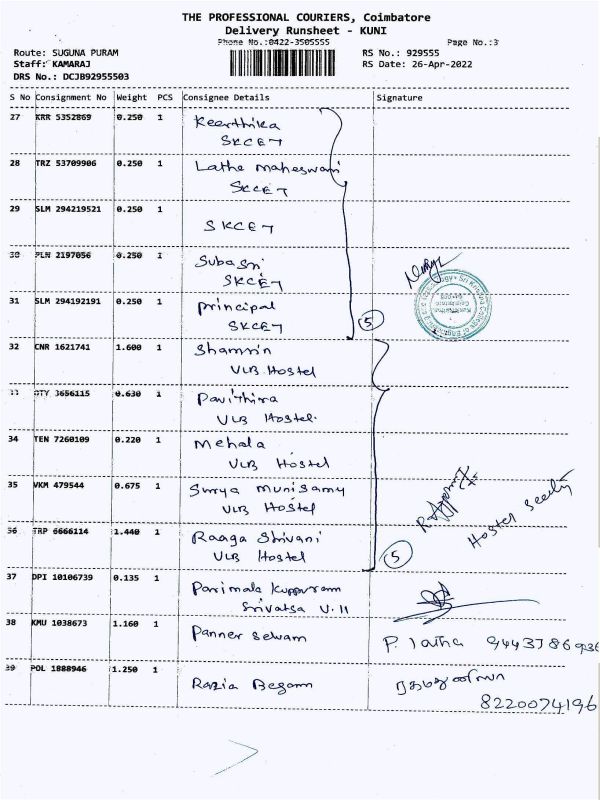 THE PROFESSIONAL COURIERS, Coimbatore
Delivery Runsheet - KUNI
Phone No.:0422-3505555
Page No.:3
Route: SUGUNA PURAM
RS No.: 929555
Staff: KAMARAJ
RS Date: 26-Apr-2022
DRS No.: DCJB92955503
S No Consignment No Weight PCS Consignee Details Signature
27 KRR 5352869 0.250 1 Keerthika
SKCET
28 TRZ 53709906 0.250 1 Lathe maheswari
SKCET
29 SLM 294219521 0.250 1
SKCET
30 PLN 2197056 0.250 1 Subasri
SKCET
31 SLM 294192191 0.250 1 principal
SKCET
5
32 CNR 1621741 1.600 1 Shamrin
VLB Hostel
33 OTY 3656115 0.630 1 Pavithira
VLB Hostel.
34 TEN 7260109 0.220 1 Mehala
VLB Hostel
35 VKM 479544 0.675 1 Surya Munisamy
VLB Hostel
36 TRP 6666114 1.440 1 Raaga Shivani
VLB Hostel
5
Hostel
37 DPI 10106739 0.135 1 Parimala Kuppuram
Srivatsa V.11
38 KMU 1038673 1.160 1 Panner selvam P. latha
39 POL 1888946 1.250 1 Razia Begam
8220074196